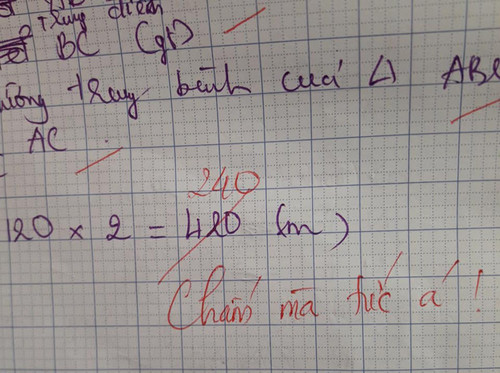 trung điểm
BC (gt)
đường trung bình của Δ ABC
AC
240
120 × 2 = 420 (m)
Chấm mà tức á !